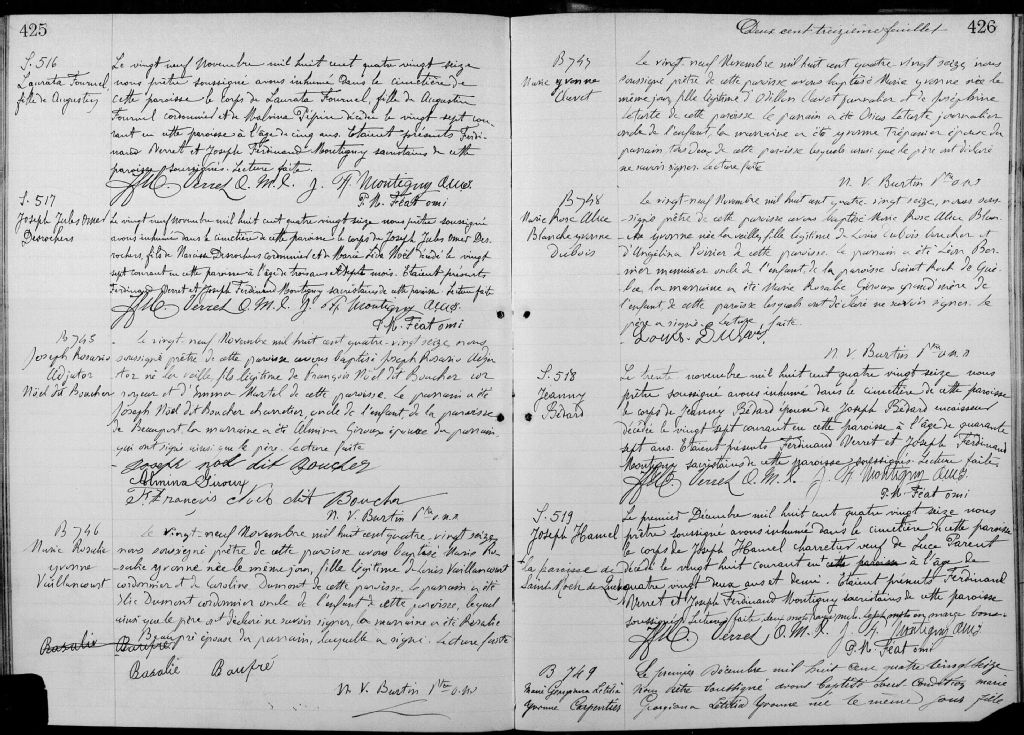 425
S. 516
Laurata Fournel
fille de Augustin
Le vingt neuf Novembre mil huit cent quatre vingt seize
nous prêtre soussigné avons inhumé dans le cimetière de
cette paroisse le corps de Laurata Fournel, fille de Augustin
Fournel cordonnier et de Malvina Pépin décédée le vingt sept cou-
rant en cette paroisse à l'âge de cinq ans. Etaient présents Ferdi-
nand Verret et Joseph Ferdinand Montigny sacristains de cette
paroisse soussignés. Lecture faite
Verret O.M.I. J. F. Montigny
P. M. Féat omi
S. 517
Joseph Jules Omer
Desrochers
Le vingt neuf novembre mil huit cent quatre vingt seize nous prêtre soussigné
avons inhumé dans le cimetière de cette paroisse le corps de Joseph Jules Omer Des
rochers, fils de Narcisse Desrochers cordonnier et de Marie Noël décédé le vingt
sept courant en cette paroisse à l'âge de trois ans et sept mois. Etaient présents
Ferdinand Verret et Joseph Ferdinand Montigny sacristains de cette paroisse. Lecture faite
Verret O.M.I. J. F. Montigny
P. M. Féat omi
B 745
Joseph Rosario
Adjutor
Noël dit Boucher
Le vingt-neuf Novembre mil huit cent quatre-vingt seize, nous
soussigné prêtre de cette paroisse avons baptisé Joseph Rosario Adju
tor né la veille, fils légitime de François Noël dit Boucher cor
royeur et d'Emma Martel de cette paroisse. Le parrain a été
Joseph Noël dit Boucher charretier, oncle de l'enfant de la paroisse
de Beauport la marraine a été Almina Giroux épouse du parrain,
qui ont signé ainsi que le père. Lecture faite
Joseph noel dit Boucher
Almina Giroux
François Noël dit Boucher
N. V. Burtin Ptre o.m.i
B 746
Marie Rosalie
Yvonne
Vaillancourt
Le vingt-neuf Novembre mil huit cent quatre-vingt seize,
nous soussigné prêtre de cette paroisse avons baptisé Marie Ro-
salie Yvonne née le même jour, fille légitime de Louis Vaillancourt
cordonnier et de Caroline Dumont de cette paroisse. Le parrain a été
Elie Dumont cordonnier oncle de l'enfant de cette paroisse, lequel
ainsi que le père ont déclaré ne savoir signer, la marraine a été Rosalie
Beaupré épouse du parrain, laquelle a signé. Lecture faite
Rosalie Baupré
Rosalie Baupré
N. V. Burtin Ptre o.m.i
Deux cent treizième feuillet
426
B 747
Marie Yvonne
Chevet
Le vingt-neuf Novembre mil huit cent quatre vingt seize, nous
soussigné prêtre de cette paroisse avons baptisé Marie Yvonne née le
même jour, fille légitime d'Odillon Clavet journalier et de Joséphine
Letarte de cette paroisse. Le parrain a été Letarte journalier
oncle de l'enfant, la marraine a été Yvonne Trépanier épouse du
parrain tous deux de cette paroisse lesquels ainsi que le père ont déclaré
ne savoir signer. Lecture faite
N. V. Burtin Ptre o.m.i
B 748
Marie Rose Alice
Blanche Yvonne
Dubois
Le vingt-neuf Novembre mil huit cent quatre vingt seize, nous sous-
signé prêtre de cette paroisse avons baptisé Marie Rose Alice Blan-
che Yvonne née la veille, fille légitime de Louis Dubois boucher et
d'Angélina Poirier de cette paroisse. Le parrain a été Léon Ber-
nier menuisier oncle de l'enfant de la paroisse Saint Roch de Qué-
bec, la marraine a été Marie Rosalie Giroux grand'mère de
l'enfant de cette paroisse lesquels ont déclaré ne savoir signer. Le
père a signé. Lecture faite.
Louis Dubois
N. V. Burtin Ptre o.m.i
S. 518
Jeanny
Bédard
Le trente novembre mil huit cent quatre vingt seize nous
prêtre soussigné avons inhumé dans le cimetière de cette paroisse
le corps de Jeanny Bédard épouse de Joseph Bédard encaisseur
décédée le vingt sept courant en cette paroisse à l'âge de quarante
sept ans. Etaient présents Ferdinand Verret et Joseph Ferdinand
Montigny sacristains de cette paroisse soussignés. Lecture faite
Verret O.M.I. J. F. Montigny
P. M. Féat omi
S. 519
Joseph Hamel
la paroisse de
Saint Roch de Québec
Le premier Décembre mil huit cent quatre vingt seize nous
prêtre soussigné avons inhumé dans le cimetière de cette paroisse
le corps de Joseph Hamel charretier veuf de Luce Parent
décédé le vingt huit courant en cette paroisse à l'âge de
quatre vingt deux ans et demi. Etaient présents Ferdinand
Verret et Joseph Ferdinand Montigny sacristains de cette paroisse
soussignés. Lecture faite deux mots rayés nuls. Le sept mots en marge bons.
Verret O.M.I. J. F. Montigny
P. M. Féat omi
B 749
Marie Georgiana Létitia
Yvonne Carpentier
Le premier Décembre mil huit cent quatre vingt seize
nous prêtre soussigné avons baptisé sous condition marie
Georgiana Létitia Yvonne née le même jour fille